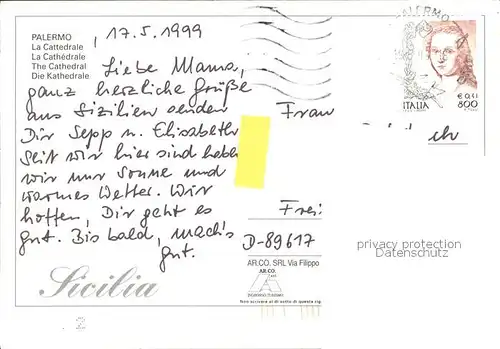 PALERMO
La Cattedrale
La Cathédrale
The Cathedral
Die Kathedrale
17.5.1999
Liebe Mama,
ganz herzliche Grüße
aus Sizilien senden
Dir Sepp u. Elisabeth
Seit wir hier sind haben
wir nur Sonne und
warmes Wetter. Wir
hoffen, Dir geht es
gut. Bis bald, mach's
gut.
Sicilia
2
PALERMO
ITALIA
€ 0,41
800
Frau
D-89617
AR.CO. SRL Via Filippo
AR.CO.
Non scrivere al di sotto di questa rig
privacy protection
Datenschutz